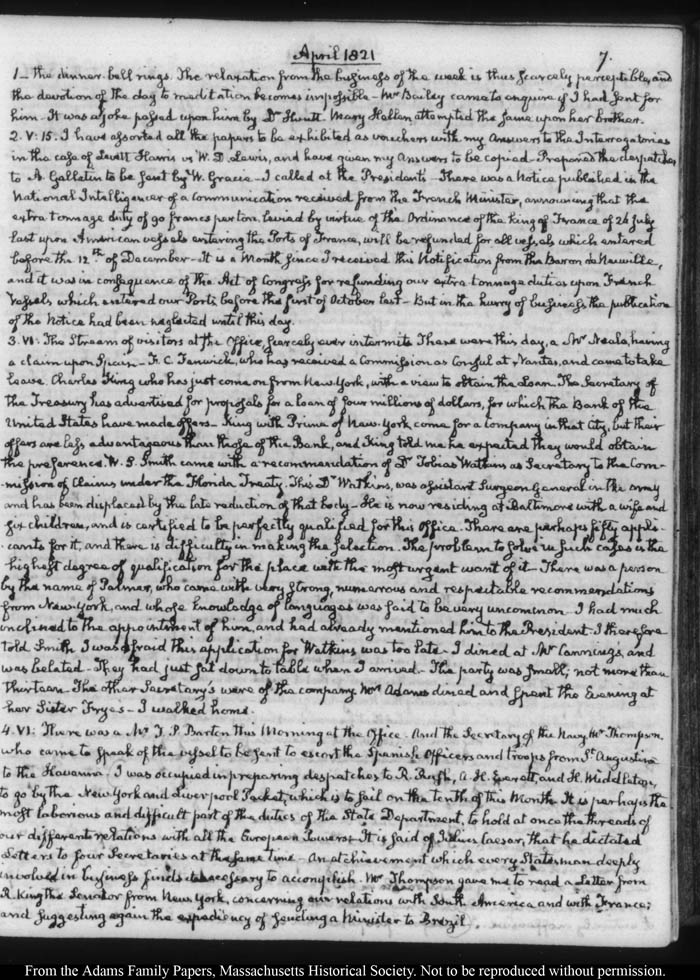 April 1821
7.
1— the dinner-bell rings. The relaxation from the business of the week is thus scarcely perceptible, and
the devotion of the day to meditation becomes impossible— Mr Bailey came to enquire if I had sent for
him— It was a joke passed upon him by Dr Thruitt. Mary Hellen attempted the same upon her brother.
2. V:15. I have assorted all the papers to be exhibited as vouchers with my Answers to the Interrogatories
in the case of Levett Harris vs W. D. Lewis, and have given my Answers to be copied. Prepared the despatches
to A. Gallatin to be sent by W. Gracie— I called at the President's— There was a Notice published in the
National Intelligencer of a communication received from the French Minister, announcing that the
extra tonnage duty of 90 francs per ton, levied by virtue of the Ordinance of the King of France of 26 July
last upon American vessels entering the Ports of France, will be refunded for all vessels which entered
before the 12th of December— It is a Month since I received this Notification from the Baron de Neuville,
and it was in consequence of the Act of Congress for refunding our extra tonnage duties upon French
Vessels which entered our Ports before the first of October last— But in the hurry of business the publication
of the Notice had been neglected until this day.
3. VI: The Stream of visitors at the Office, scarcely ever intermits. There were this day, a Mr Neale, having
a claim upon Spain— F. C. Fenwick, who has received a Commission as Consul at Nantes, and came to take
leave. Charles King who has just come on from New York, with a view to obtain the Loan. The Secretary of
the Treasury has advertised for proposals for a loan of four millions of dollars, for which the Bank of the
United States have made offers— King with Prime of New-York come for a Company in that City, but their
offers are less advantageous than those of the Bank, and King told me he expected they would obtain
the preference. W. S. Smith came with a recommendation of Dr Tobias Watkins as Secretary to the Com-
mission of Claims under the Florida Treaty. This Dr Watkins, was assistant Surgeon General in the army
and has been displaced by the late reduction of that body— He is now residing at Baltimore with a wife and
six children, and is certified to be perfectly qualified for this Office. There are perhaps fifty appli-
-cants for it, and there is difficulty in making the selection. The problem to solve in such cases is the
highest degree of qualification for the place with the most urgent want of it— There was a person
by the name of Palmer, who came with very strong, numerous and respectable recommendations
from New York, and whose knowledge of languages was said to be very uncommon— I had much
inclined to the appointment of him, and had already mentioned him to the President— I therefore
told Smith I was afraid this application for Watkins was too late— I dined at Mr Canning's, and
was belated— They had just sat down to table when I arrived— The party was small; not more than
thirteen— The other Secretary's were of the company. Mrs Adams dined and spent the Evening at
her Sister Frye's— I walked home.
4. VI: There was a Mr J. P. Barton this Morning at the Office— And the Secretary of the Navy, Mr Thompson,
who came to speak of the vessel to be sent to escort the Spanish Officers and troops from St Augustine
to the Havanna— I was occupied in preparing despatches to R. Rush, A. H. Everett, and H. Middleton,
to go by the New York and Liverpool Packet, which is to sail on the tenth of this Month— It is perhaps the
most laborious and difficult part of the duties of the State Department, to hold at once the threads of
our different relations with all the European Powers— It is said of Julius Caesar, that he dictated
Letters to four Secretaries at the same time— An achievement which every Statesman deeply
involved in business finds it necessary to accomplish. Mr Thompson gave me to read a Letter from
R. King the Senator from New York, concerning our relations with South America and with France;
and suggesting again the expediency of sending a Minister to Brazil.
From the Adams Family Papers, Massachusetts Historical Society. Not to be reproduced without permission.